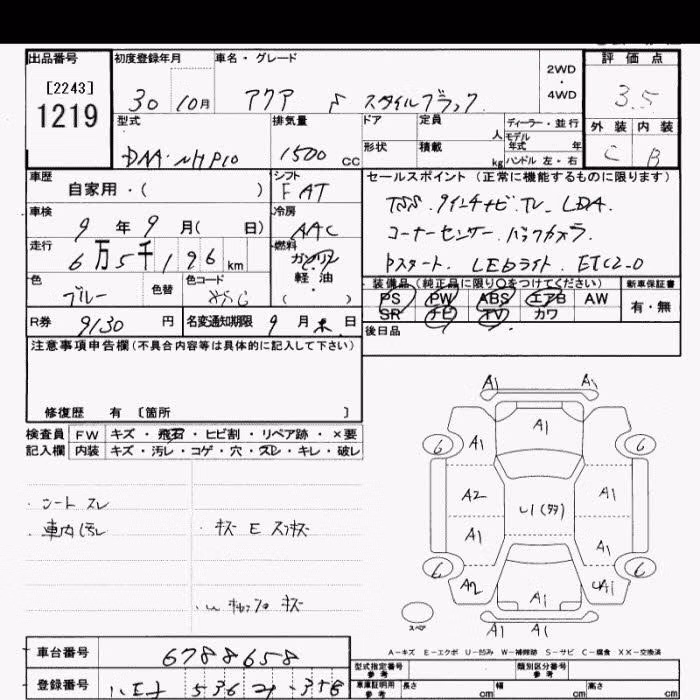 出品番号 初度登録年月 車名・グレード 2WD・4WD 評価点
[2243] 1219 30 10月 アクア S スタイルブラック 3.5
型式 排気量 ドア 定員 人 ディーラー・並行 外装 内装
DAA-NHP10 1500cc 形状 積載 kg モデル年式 年 ハンドル 左・右 C B
車歴 シフト セールスポイント(正常に機能するものに限ります)
自家用・( ) FAT TSS.9インチナビ.TV.LDA.
車検 冷房 コーナーセンサー.バックカメラ.
9年9月( 日) AAC Pスタート.LEDライト.ETC2.0
走行 燃料
6万5千196km ガソリン 軽油 ( )
色 色替 色コード 装備品(純正品に限り○をつけてください) 新車保証書
ブルー PS PW ABS エアB AW 有・無
SR ナビ TV カワ
R券 9130円 名変通知期限 9月末日 後日品
注意事項申告欄(不具合内容等は具体的に記入して下さい)
修復歴 有〔箇所 〕
検査員 FW キズ・飛石・ヒビ割・リペア跡・×要
記入欄 内装 キズ・汚レ・コゲ・穴・スレ・キレ・破レ
A1 A1
A1
6 A1 6
A2 U1 A1
A1 A1
6 6
A2 A1 A1
スペア A1 A1
・シート スレ
・車内汚レ ・キズ E スリキズ
A-キズ E-エクボ U-凹み W-補修跡 S-サビ C-腐食 XX-交換済
車台番号 6788658
型式指定番号 参考 類別区分番号 参考
登録番号 八王子 536
車庫証明用 参考 長さ cm 幅 cm 高さ cm